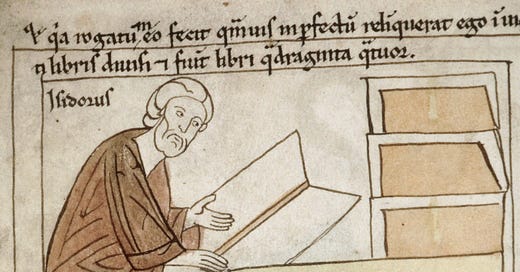 qͥa rogatu meo fecit qͣmuis inp̄fectū reliquerat ego
libris diuisi ⁊ fiūt libri qͣdraginta qͣtuor.
Isidorus